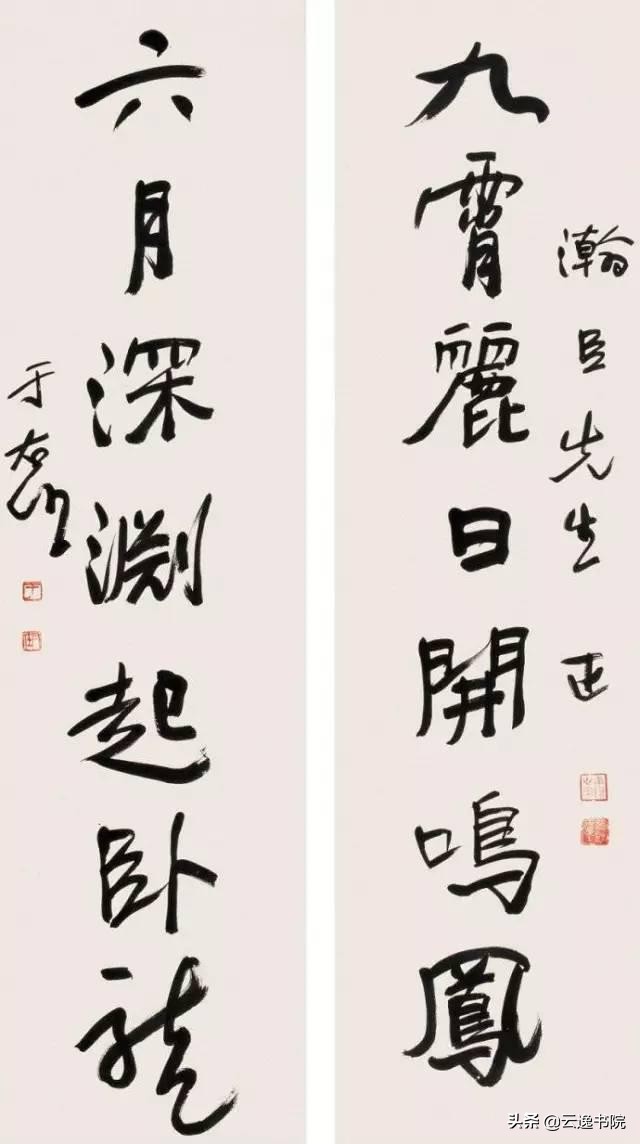 瀚臣先生正
九霄麗日開鳴鳳
六月深淵起臥龍
于右任
头条 @云逸书院